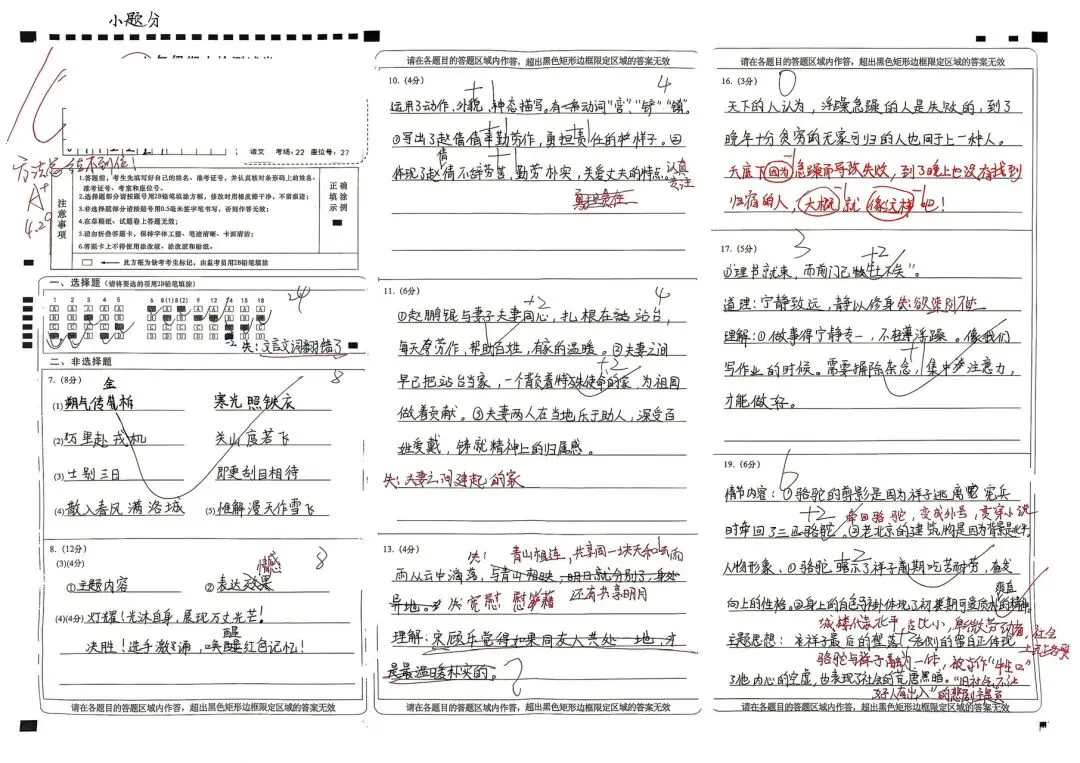 小题分
语文 考场:22 座位号:27
方法总结不到位!
A+
4.29
注意事项
1.答题前,考生先填写好自己的姓名、准考证号,并认真核对条形码上的姓名、
准考证号、考室和座位号。
2.选择题部分请按题号用2B铅笔填涂方框,修改时用橡皮擦干净,不留痕迹;
3.非选择题部分请按题号用0.5毫米签字笔书写,否则作答无效;
4.在草稿纸、试题卷上答题无效;
5.请勿折叠答题卡,保持字体工整、笔迹清晰、卡面清洁;
6.答题卡上不得使用涂改液、涂改胶和贴纸。
正确填涂示例
此方框为缺考考生标记,由监考员用2B铅笔填涂
一、选择题(请将要选的项用2B铅笔填涂)
1 2 3 4 5 6 8(1) 8(2) 9 12 14 15 18
24
-2 失:文言文词翻错了
二、非选择题
7.(8分)
8
金
(1)朔气传 柝 寒光照铁衣
(2)万里赴戎机 关山度若飞
(3)士别三日 即更刮目相待
(4)散入春风满洛城 (5)惟解漫天作雪飞
8.(12分)
(3)(4分)
憾感
8
①主题内容 ②表达效果
(4)(4分) 灯耀!光沐自身,展现万丈光芒!
醒
决胜!选手激 涌,唤醒红色记忆!
请在各题目的答题区域内作答,超出黑色矩形边框限定区域的答案无效
请在各题目的答题区域内作答,超出黑色矩形边框限定区域的答案无效
10.(4分)
4
+1
运用了动作,外貌,神态描写。有一系动词"宫""铲""镇"
①写出了赵倩倩辛勤劳作,勇担责任的 样子。因
倩
体现了赵倩不辞劳苦,勤劳朴实,关爱丈夫的特点。认真
专注
勇担责任
11.(6分)
4
+2
①赵鹏锟与妻子夫妻同心,扎根在 站台,
每天 劳作,帮助百姓,有家的温暖。②夫妻之间
+2
早已把站台当家,一个 着特殊使命的家,为祖国
做着贡献。③夫妻两人在当地乐于助人,深受百
姓爱戴,铸就精神上的归属感。
失:夫妻之间建起的家
13.(4分)
失: 青山相连,共享同一块天和云雨
雨从云中滴落,与青山相映,明日就分别了,身处
异地。 失 宽慰 慰藉 还有共享明月
理解:宋顾乐觉得如果同友人共处一地,才
是最温暖朴实的。
2
请在各题目的答题区域内作答,超出黑色矩形边框限定区域的答案无效
请在各题目的答题区域内作答,超出黑色矩形边框限定区域的答案无效
16.(3分)
0
天下的人认为,浮躁急躁的人是失败的,到了
晚年十分贫穷的无家可归的人也同于上一种人。
天底下因为急躁而导致失败,到了晚上也没有找到
归宿的人,大概就像这样吧!
17.(5分)
3
+2
道理:宁静致远,静以修身 失欲速则不达
理解:①做事得宁静专一,不 浮躁。像我们
+1
写作业的时候。需要摒除杂念,集中 注意力,
才能做好。
19.(6分)
6
情节内容:①骆驼的剪影是因为祥子逃离 兵
+2 牵回骆驼,
时牵回了三匹骆驼。②老北京的建筑物是因为背景是北平。
+2
人物形象:①骆驼暗示了祥子前期吃苦耐劳,奋发
向上的性格。
+2
主题思想:
骆驼与祥子融为一体,被当作"牲口"
了他内心的空虚,也表现了社会的荒唐黑暗。
请在各题目的答题区域内作答,超出黑色矩形边框限定区域的答案无效